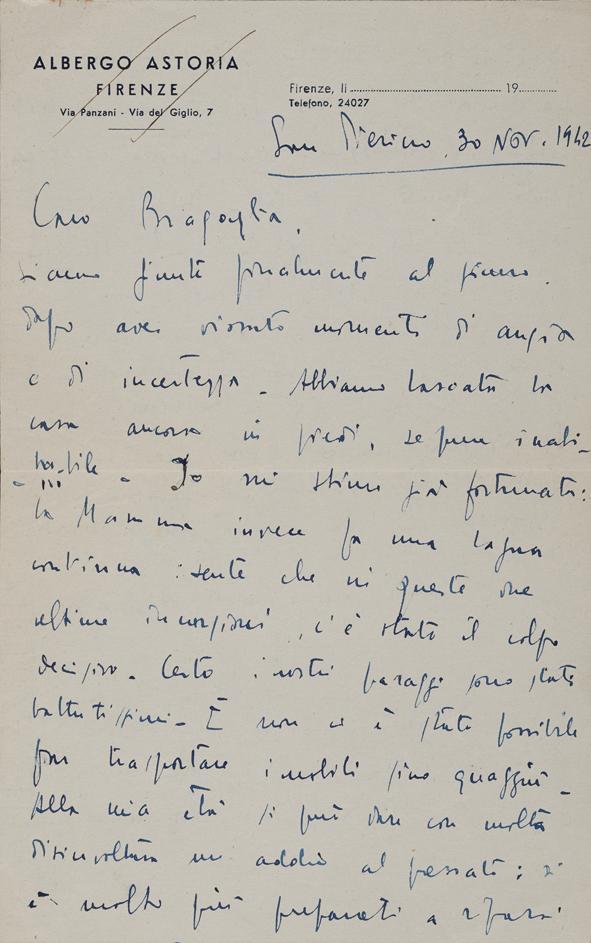 ALBERGO ASTORIA
FIRENZE
Via Panzani - Via del Giglio, 7
Firenze, li ........ 19......
Telefono, 24027
San Pierino, 30 Nov. 1942
Caro Bragaglia,
siamo giunti finalmente al sicuro.
dopo aver vissuto momenti di angoscia
e di incertezza - Abbiamo lasciata la
casa ancora in piedi, se pure inabi-
tabile - Io mi stimo già fortunato:
la Mamma invece fa una lagna
continua: sente che in queste due
ultime incursioni, c'è stato il colpo
decisivo. Certo i nostri paraggi sono stati
battutissimi - E non ci è stato possibile
far trasportare i mobili fino quaggiù -
Alla mia età si può dare con molta
disinvoltura un addio al passato: si
è molto più preparati a rifarsi